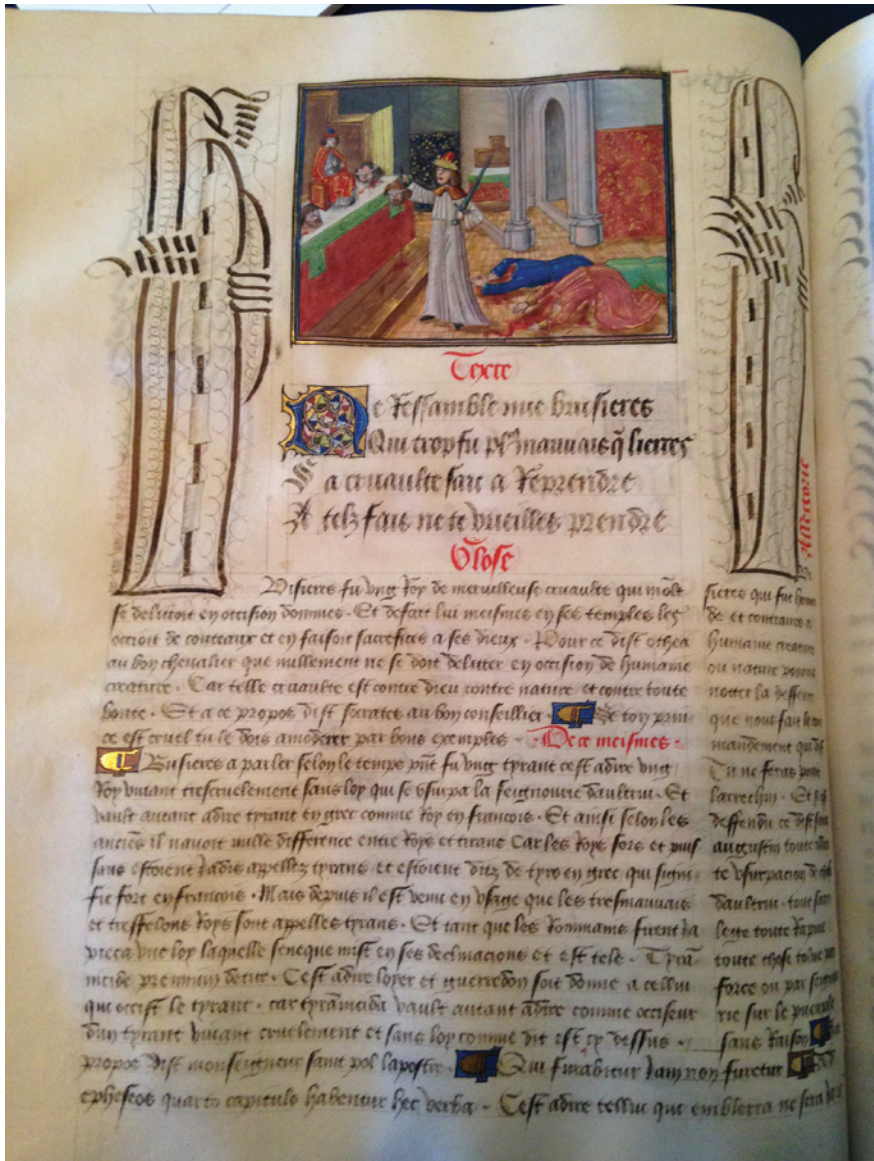 Texte
Ne Ressamble mie busieres
Qui trop fu plꝰ mauuais q̃ lierres
Sa cruaulte fait a Reprendre
A telz fais ne te vueilles prendre
Glose
Busieres fu vng Roy de merueilleuse cruaulte qui mõlt
se delittoit en occision dommes. Et defait lui meismes en ses temples les
occioit de couteaux et en faisoit sacrefices a ses dieux. Pour ce dist othea
au bon cheualier que nullement ne se doit deliter en occision de humaine
creature. Car telle cruaulte est contre dieu contre nature et contre toute
bonte. Et a ce propos dist socrates au bon conseillier. Se ton prin
ce est cruel tu le dois amoderer par bons exemples - De ce meismes -
Busieres a parler selon le temps pñt fu vng tyrant cest adire vng
Roy viuant trescruelement sans loy qui se vsurpa la seignourie daultrui. Et
vault autant adire tyrant en grec comme Roy en francois. Et ainsi selon les
anciẽs il nauoit nulle difference entre Roys et tirans Car les Roys fors et puis
sans estoient Jadis appellez tyrans et estoient ditz de tyro en grec qui signi
fie fort en francois. Mais depuis il est venu en vsage que les tresmauuais
et tresfelons Roys sont appelles tyrans. Et tant que les Rommains firent Ja
pieca vne loy laquelle seneque mist en ses declinacions et est tele. Tyrã
nicide premium detur. Cest adire loyer et guerredon soit donne a cellui
qui occist le tyrant. car tyrãnicida vault autant adire comme occiseur
dun tyrant viuant cruelement et sans loy comme dit est cy dessus.
propos dist monseigneur saint pol lapostre. Qui furabitur Jam non furetur
epheseos quarto capitulo habentur hec verba - Cest adire cellui que emblera ne sera
Allegorie
sieres qui fut
de et contraire a
humaine creature
ou nature
notter la deffense
que nous fait le
mandement qui dist
Tu ne feras point
larrechin. Et
deffendu ce dist saint
augustin toute
te vsurpacion de
daultrui. tout
lege toute Rapine
toute chose tolue par
force ou par seignou
rie sur le peuple
sans Raison